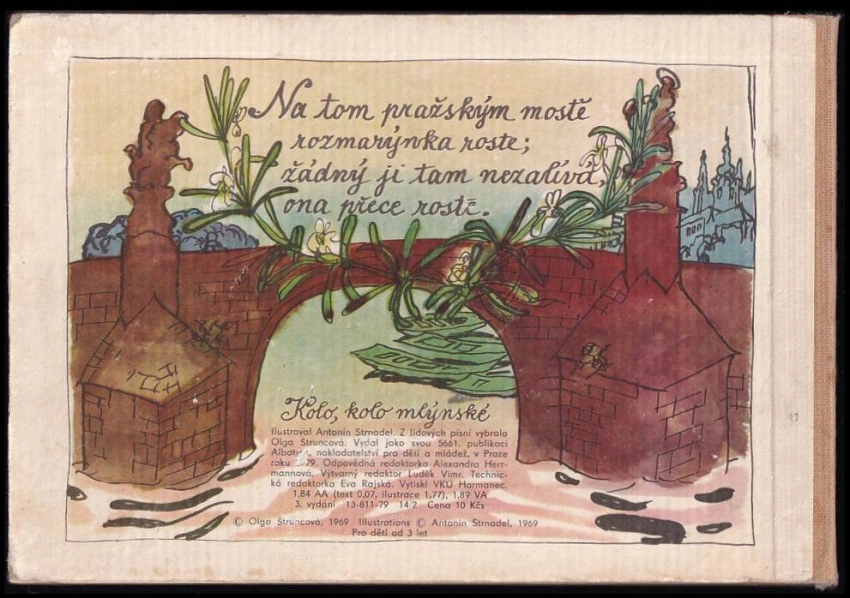 Na tom pražským mostě
rozmarýnka roste;
žádný ji tam nezalívá,
ona přece roste.
Kolo, kolo mlýnské
Ilustroval Antonín Strnadel. Z lidových písní vybrala
Olga Struncová. Vydal jako svou 5661. publikaci
nakladatelství pro děti a mládež, v Praze
roku 79. Odpovědná redaktorka Alexandra Herr-
mannová. Výtvarný redaktor Luděk Vimr. Technic-
ká redaktorka Eva Rajská. Vytiskl VKÚ Harmanec.
1,84 AA (text 0,07, ilustrace 1,77), 1,89 VA
3. vydání 13-811-79 14/2 Cena 10 Kčs
© Olga Struncová, 1969 Illustrations © Antonín Strnadel, 1969
Pro děti od 3 let